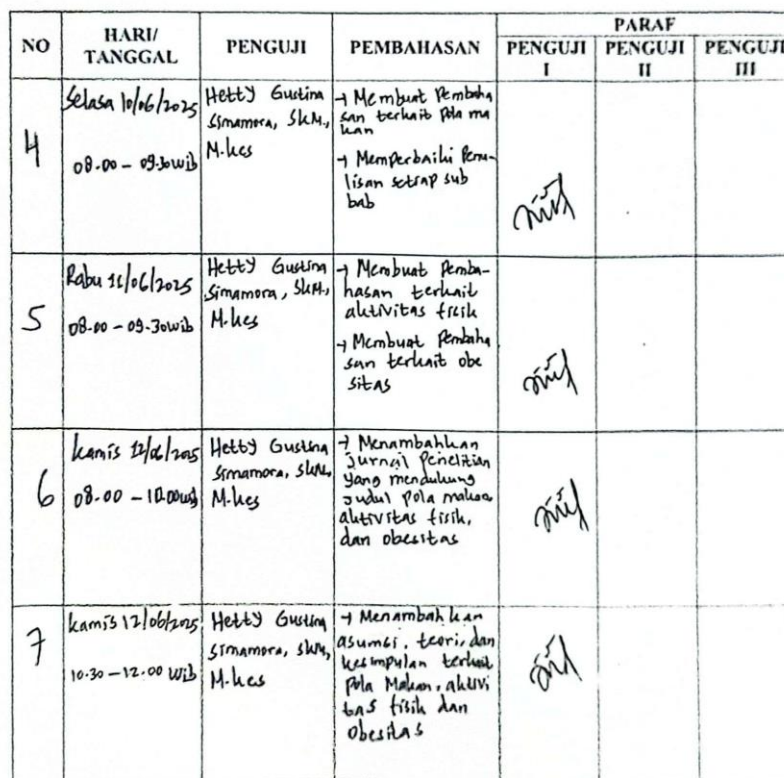 NO HARI/ TANGGAL PENGUJI PEMBAHASAN PARAF
PENGUJI I PENGUJI II PENGUJI III
4
Selasa 10/06/2025
08.00 - 09.30 wib
Hetty Gustina
Simamora, SKM.,
M.kes
→ Membuat Pembaha
san terkait pola ma
kan
→ Memperbaiki Penu-
lisan setiap sub
bab
5
Rabu 11/06/2025
08.00 - 09.30 wib
Hetty Gustina
Simamora, SKM.,
M.kes
→ Membuat Pemba-
hasan terkait
aktivitas fisik
→ Membuat Pembaha
san terkait obe
sitas
6
kamis 12/06/2025
08.00 - 10.00 wib
Hetty Gustina
Simamora, SKM,
M.kes
→ Menambahkan
jurnal penelitian
yang mendukung
judul pola makan
aktivitas fisik,
dan obesitas
7
kamis 12/06/2025
10.30 - 12.00 wib
Hetty Gustina
Simamora, SKM,
M.kes
→ Menambah kan
asumsi, teori, dan
kesimpulan terkait
Pola Makan, aktivi
tas fisik dan
Obesitas